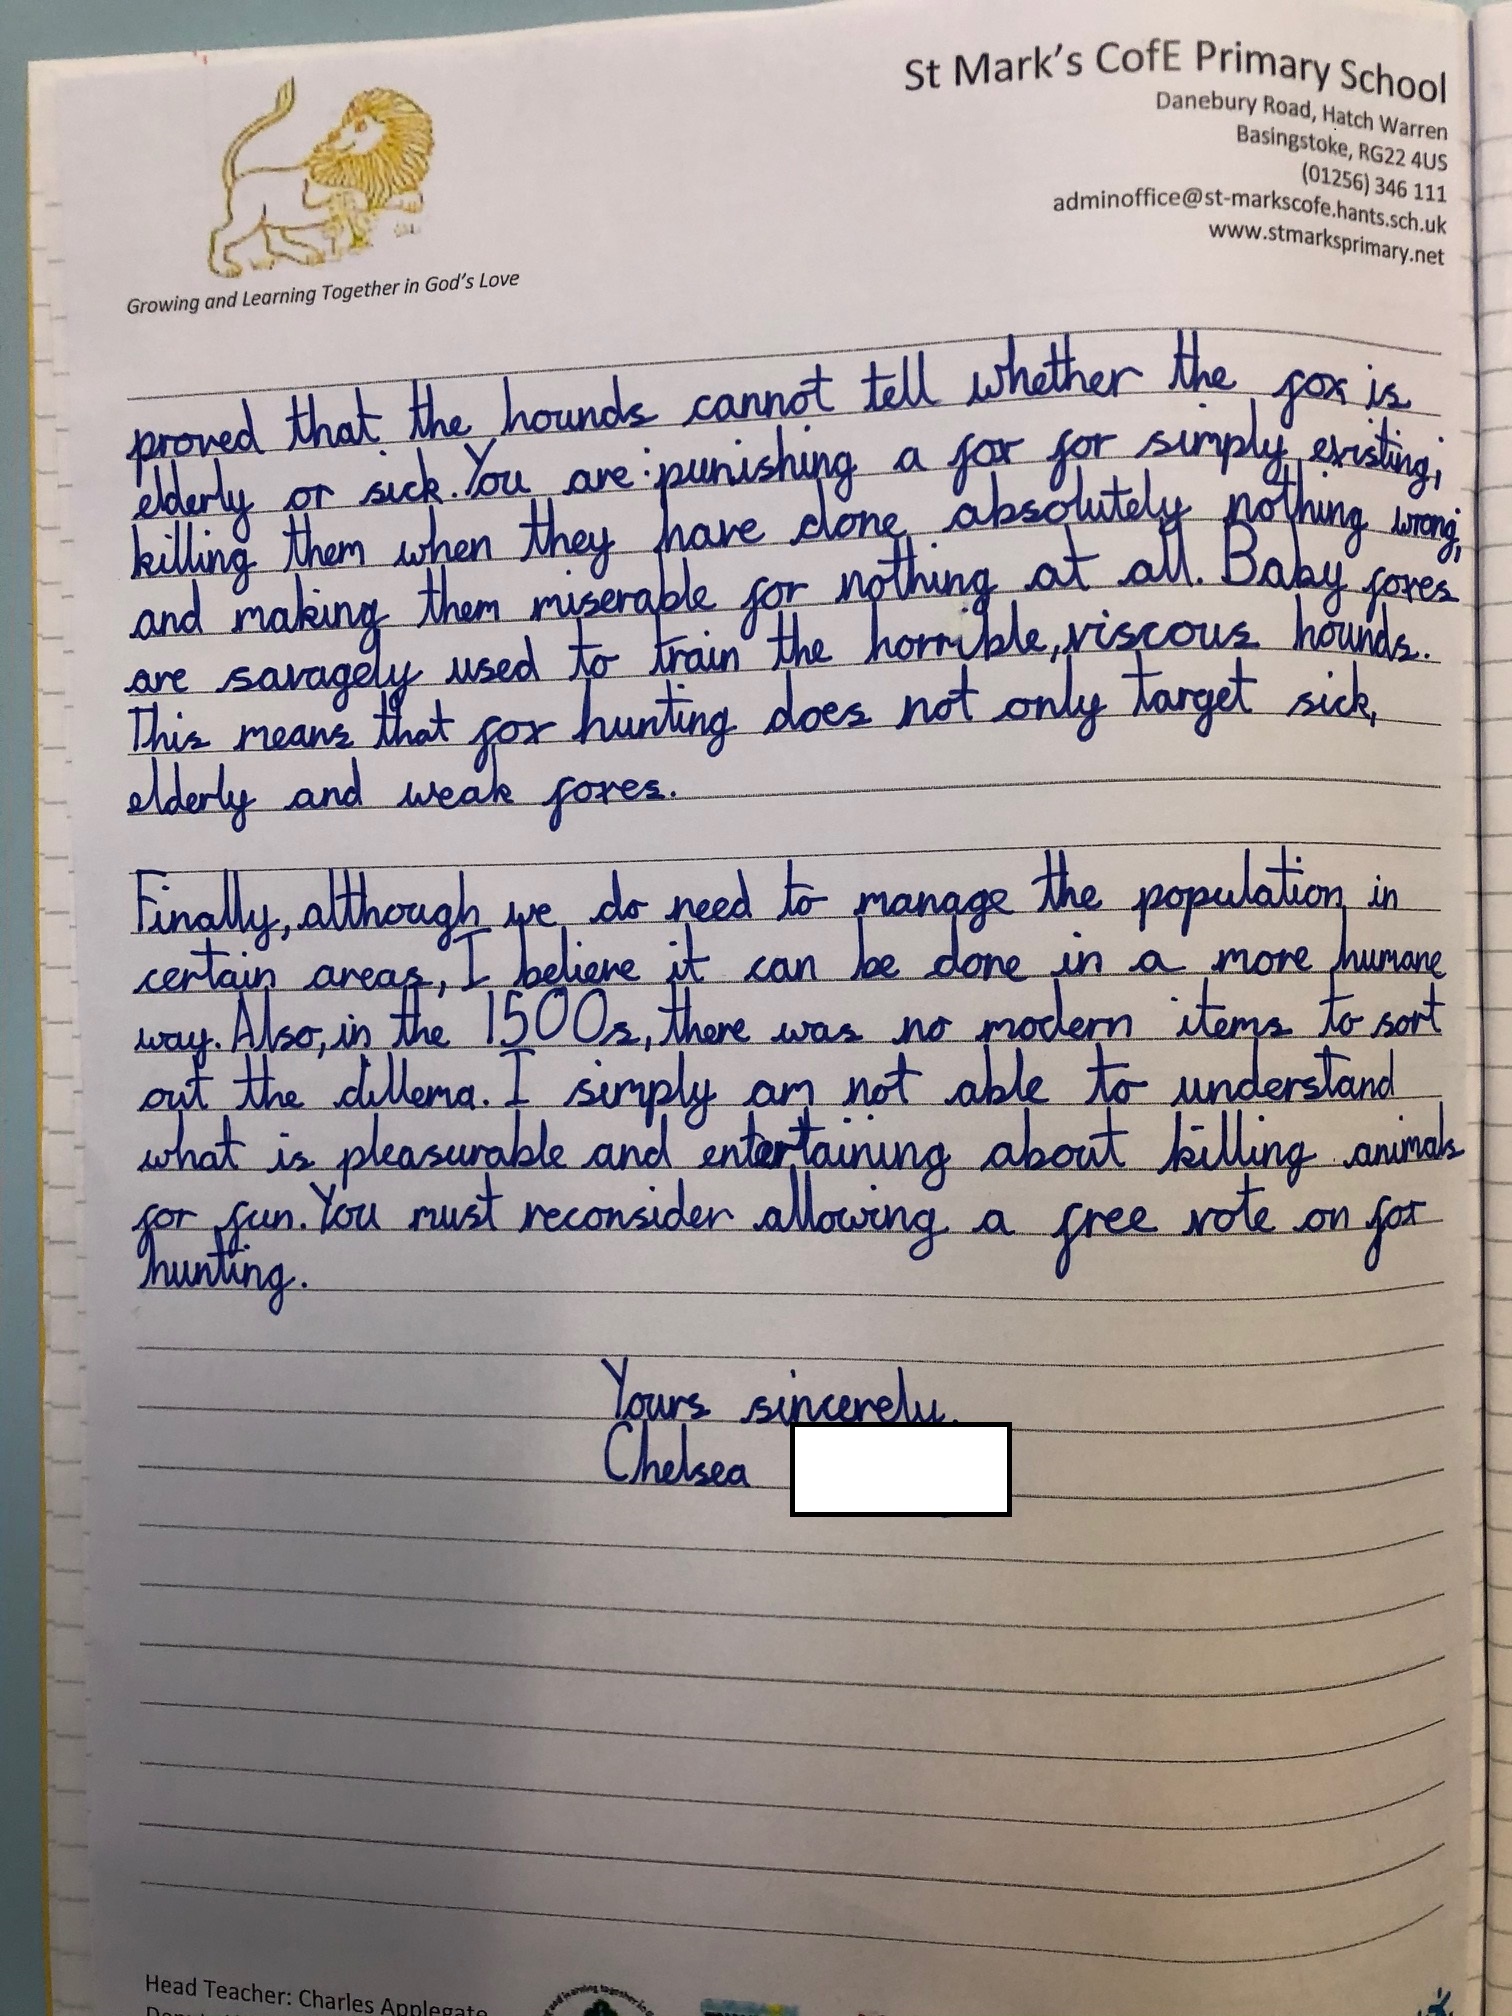 St Mark's CofE Primary School
Danebury Road, Hatch Warren
Basingstoke, RG22 4US
(01256) 346 111
adminoffice@st-markscofe.hants.sch.uk
www.stmarksprimary.net
Growing and Learning Together in God's Love
proved that the hounds cannot tell whether the fox is
elderly or sick. You are: punishing a fox for simply existing;
killing them when they have done absolutely nothing wrong;
and making them miserable for nothing at all. Baby foxes
are savagely used to train the horrible, viscous hounds.
This means that fox hunting does not only target sick,
elderly and weak foxes.
Finally, although we do need to manage the population in
certain areas, I believe it can be done in a more humane
way. Also, in the 1500s, there was no modern items to sort
out the dillema. I simply am not able to understand
what is pleasurable and entertaining about killing animals
for fun. You must reconsider allowing a free vote on fox
hunting.
Yours sincerely,
Chelsea
Head Teacher: Charles Applegate